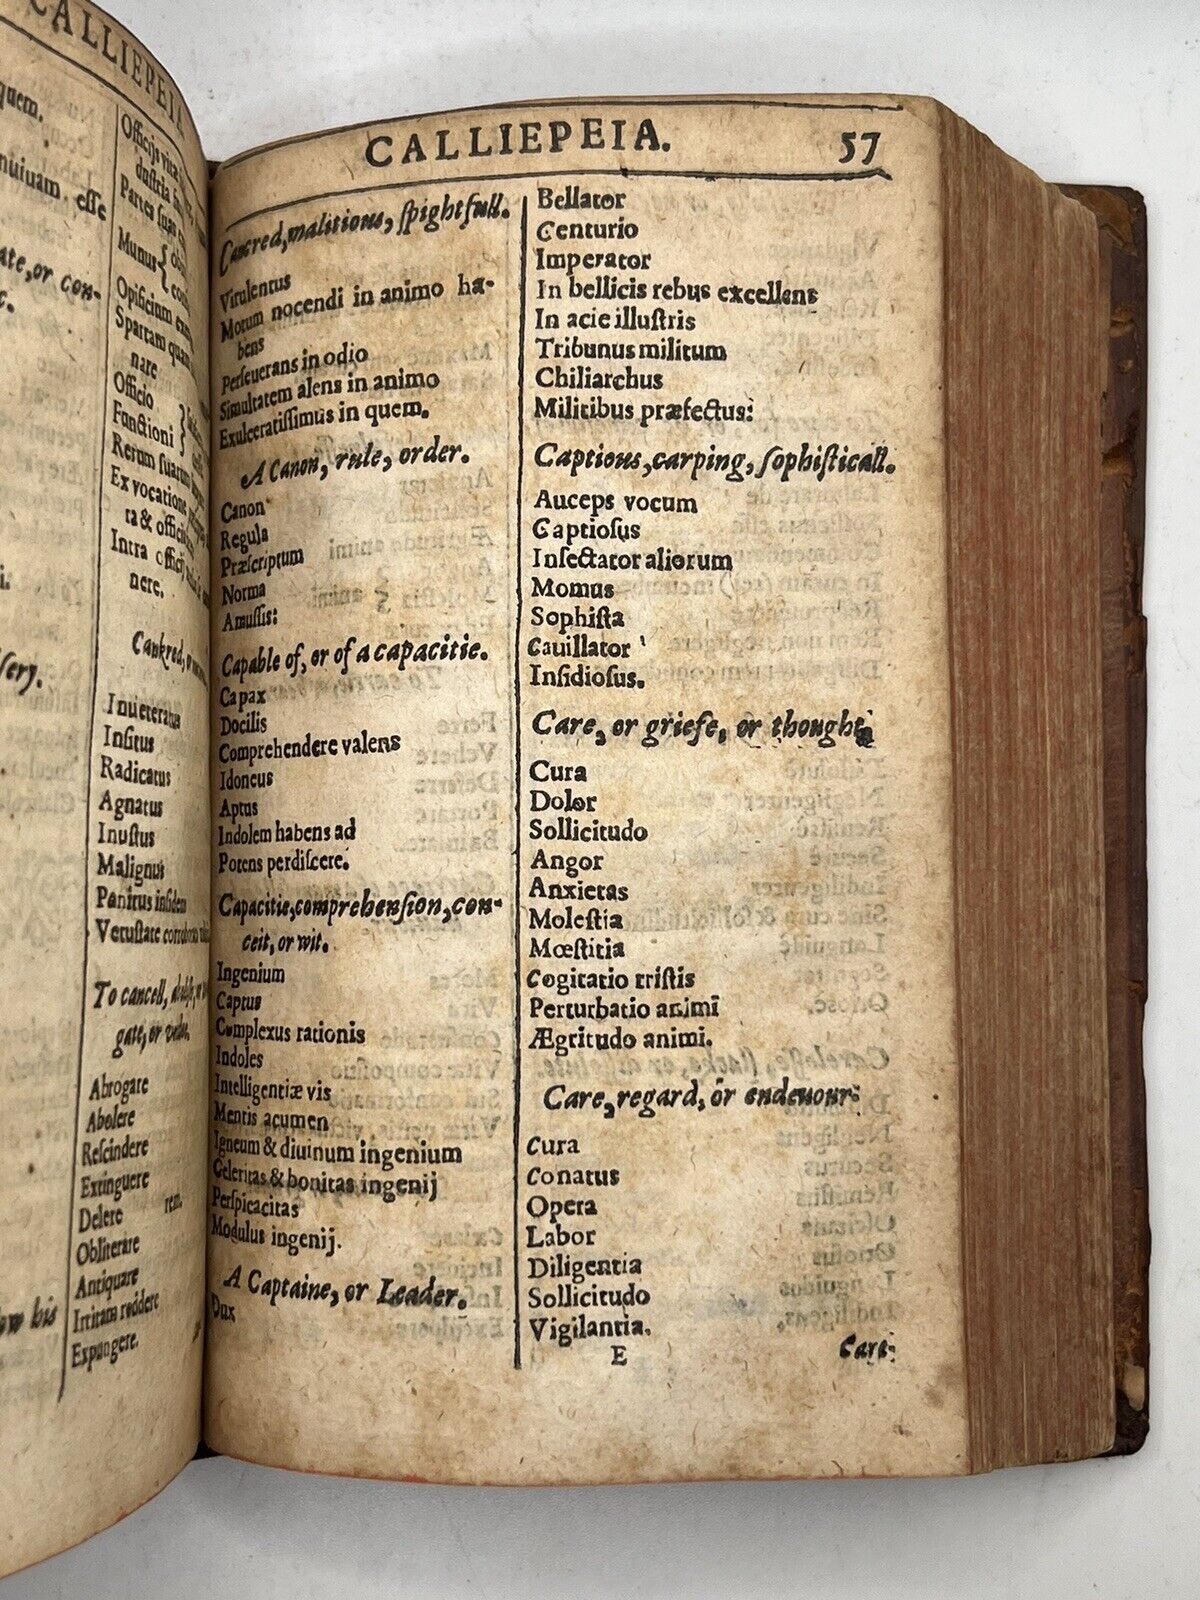 CALLIEPEIA
quem.
nuiuam esse
ate, or con-
c.
i.
sery.
ow his
Officijs vitæ
dustria
Partes suas
Munus
Opificium
Spartam quam
nare
Officio
Functioni
Rerum suarum
Ex vocatione
ta & officij
Intra officij
nere.
Cankred, or
Inueteratus
Insitus
Radicatus
Agnatus
Inustus
Malignus
Penitus insidens
Vetustate
To cancell, abolish,
gate, or
Abrogare
Abolere
Rescindere
Extinguere
Delere rem.
Obliterare
Antiquare
Irritans reddere
Expungere.
CALLIEPEIA. 57
Cancred, malitious, spightfull.
Virulentus
Motum nocendi in animo ha-
bens
Perseuerans in odio
Simultatem alens in animo
Exulceratissimus in quem.
A Canon, rule, order.
Canon
Regula
Præscriptum
Norma
Amussis:
Capable of, or of a capacitie.
Capax
Docilis
Comprehendere valens
Idoneus
Aptus
Indolem habens ad
Potens perdiscere.
Capacitie, comprehension, con-
ceit, or wit.
Ingenium
Captus
Complexus rationis
Indoles
Intelligentiæ vis
Mentis acumen
Igneum & diuinum ingenium
Celeritas & bonitas ingenij
Perspicacitas
Modulus ingenij.
A Captaine, or Leader.
Dux
Bellator
Centurio
Imperator
In bellicis rebus excellens
In acie illustris
Tribunus militum
Chiliarchus
Militibus præfectus:
Captious, carping, sophisticall.
Auceps vocum
Captiosus
Insectator aliorum
Momus
Sophista
Cauillator
Insidiosus.
Care, or griefe, or thought
Cura
Dolor
Sollicitudo
Angor
Anxietas
Molestia
Mœstitia
Cogitatio tristis
Perturbatio animi
Ægritudo animi.
Care, regard, or endeuour:
Cura
Conatus
Opera
Labor
Diligentia
Sollicitudo
Vigilantia.
E Care